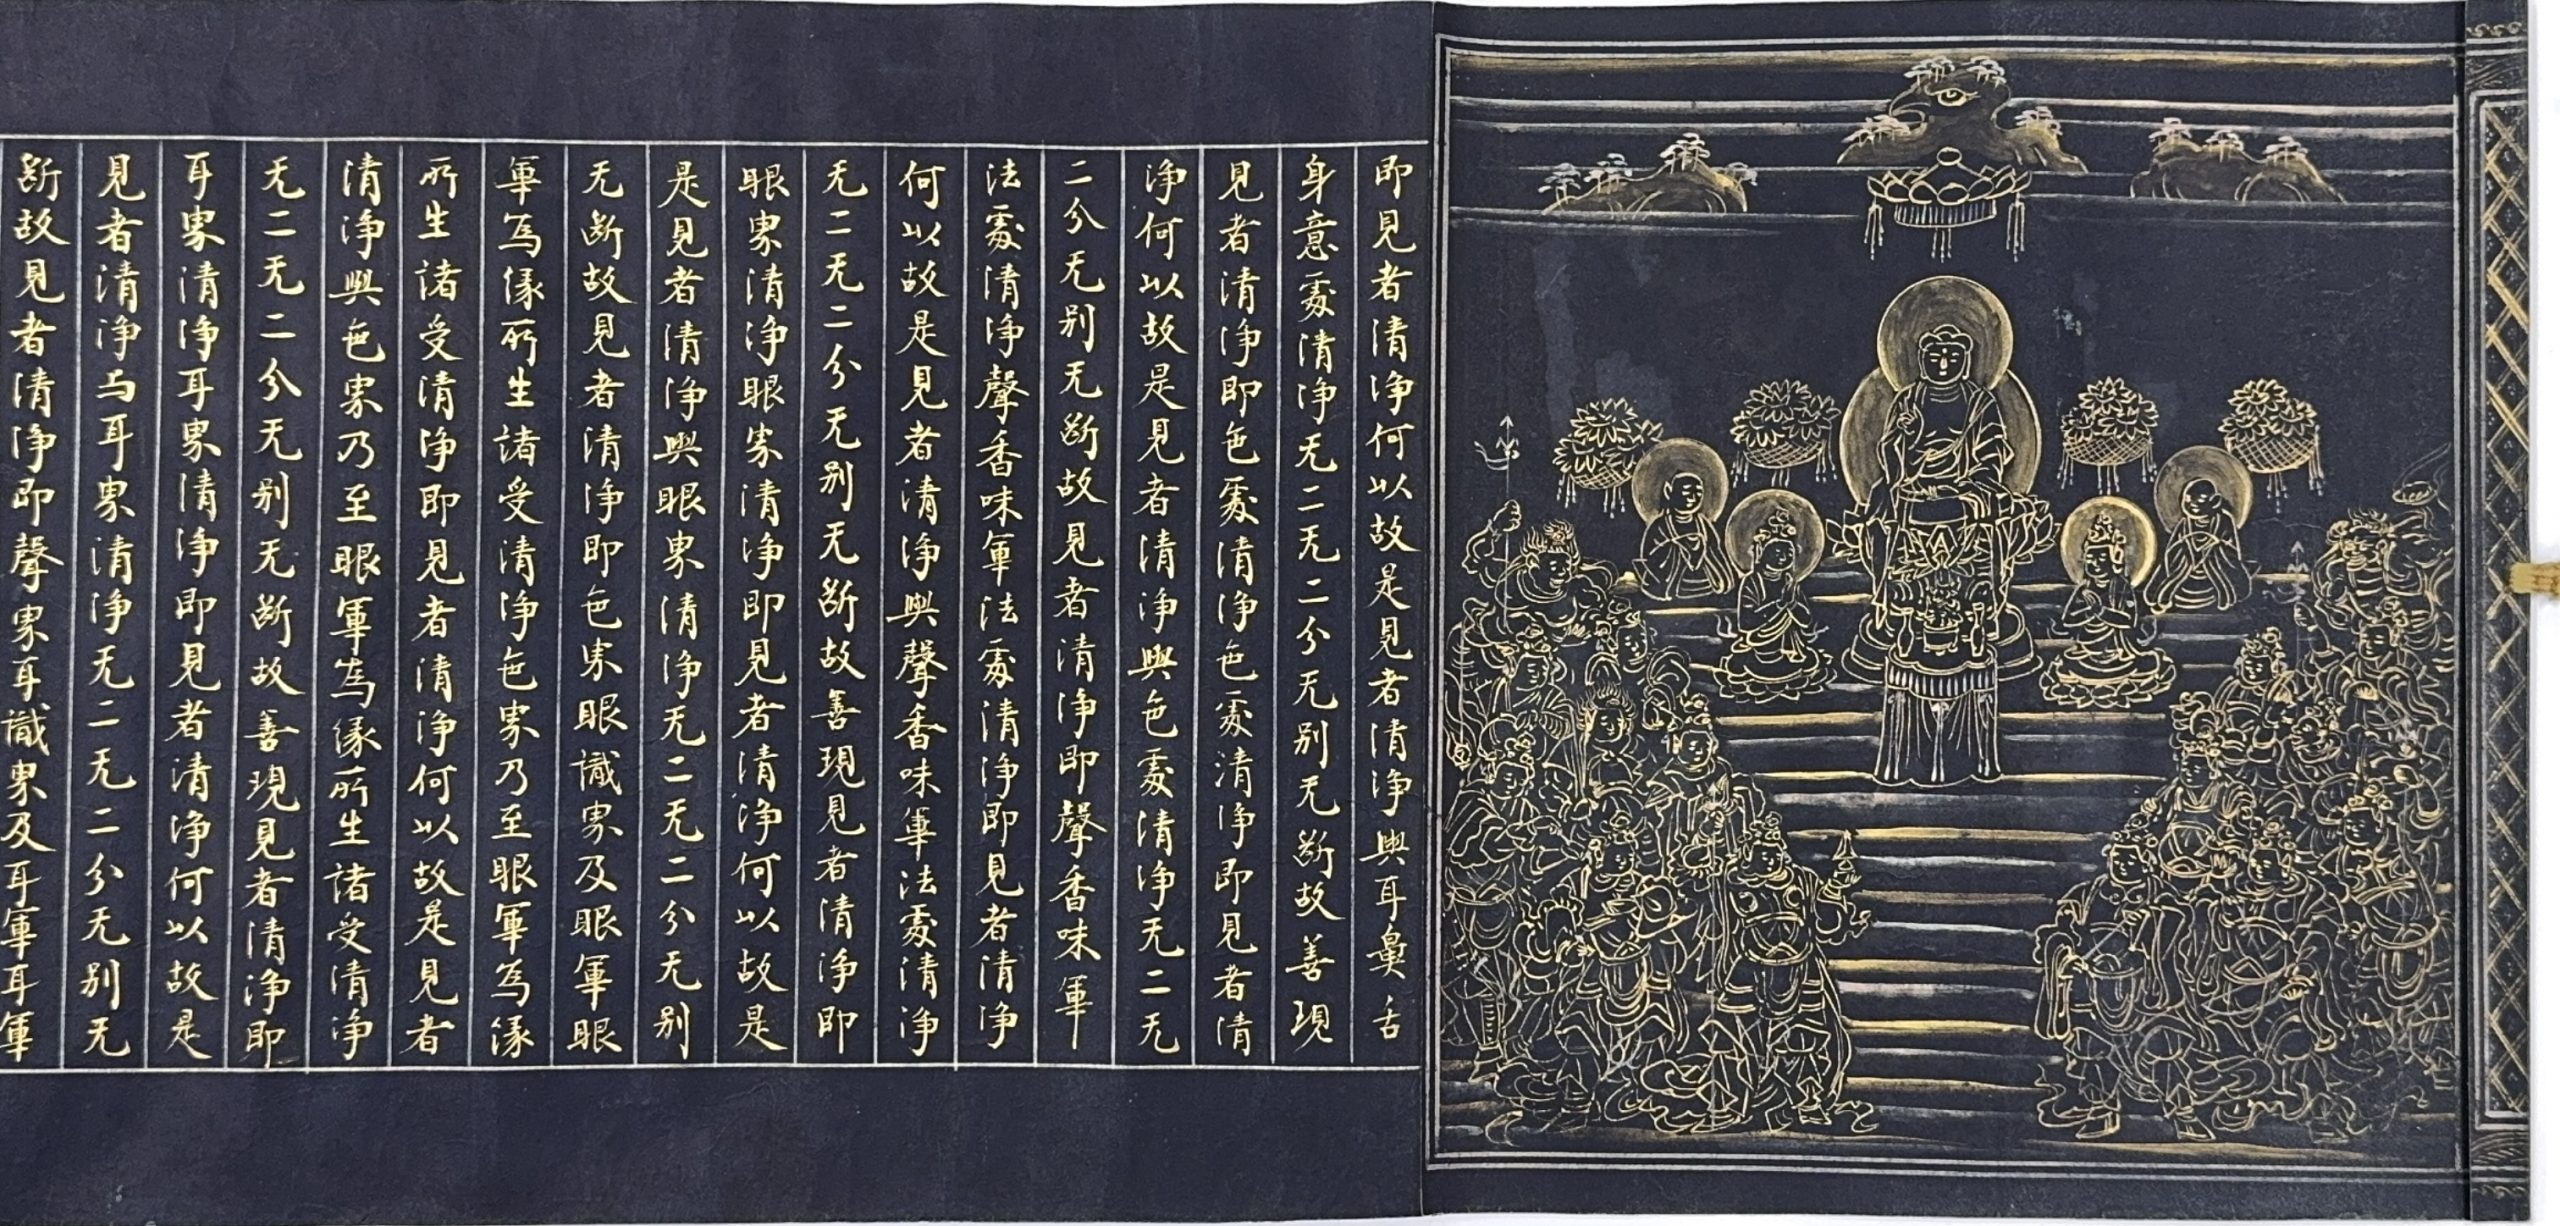 即見者清浄何以故是見者清浄與耳鼻舌
身意處清浄无二无二分无別无断故善現
見者清浄即色處清浄色處清浄即見者清
浄何以故是見者清浄與色處清浄无二无
二分无別无断故見者清浄即聲香味觸
法處清浄聲香味觸法處清浄即見者清浄
何以故是見者清浄與聲香味觸法處清浄
无二无二分无別无断故善現見者清浄即
眼界清浄眼界清浄即見者清浄何以故是
是見者清浄與眼界清浄无二无二分无別
无断故見者清浄即色界眼識界及眼觸眼
觸為縁所生諸受清浄色界乃至眼觸為縁
所生諸受清浄即見者清浄何以故是見者
清浄與色界乃至眼觸為縁所生諸受清浄
无二无二分无別无断故善現見者清浄即
耳界清浄耳界清浄即見者清浄何以故是
見者清浄与耳界清浄无二无二分无別无
断故見者清浄即聲界耳識界及耳觸耳觸